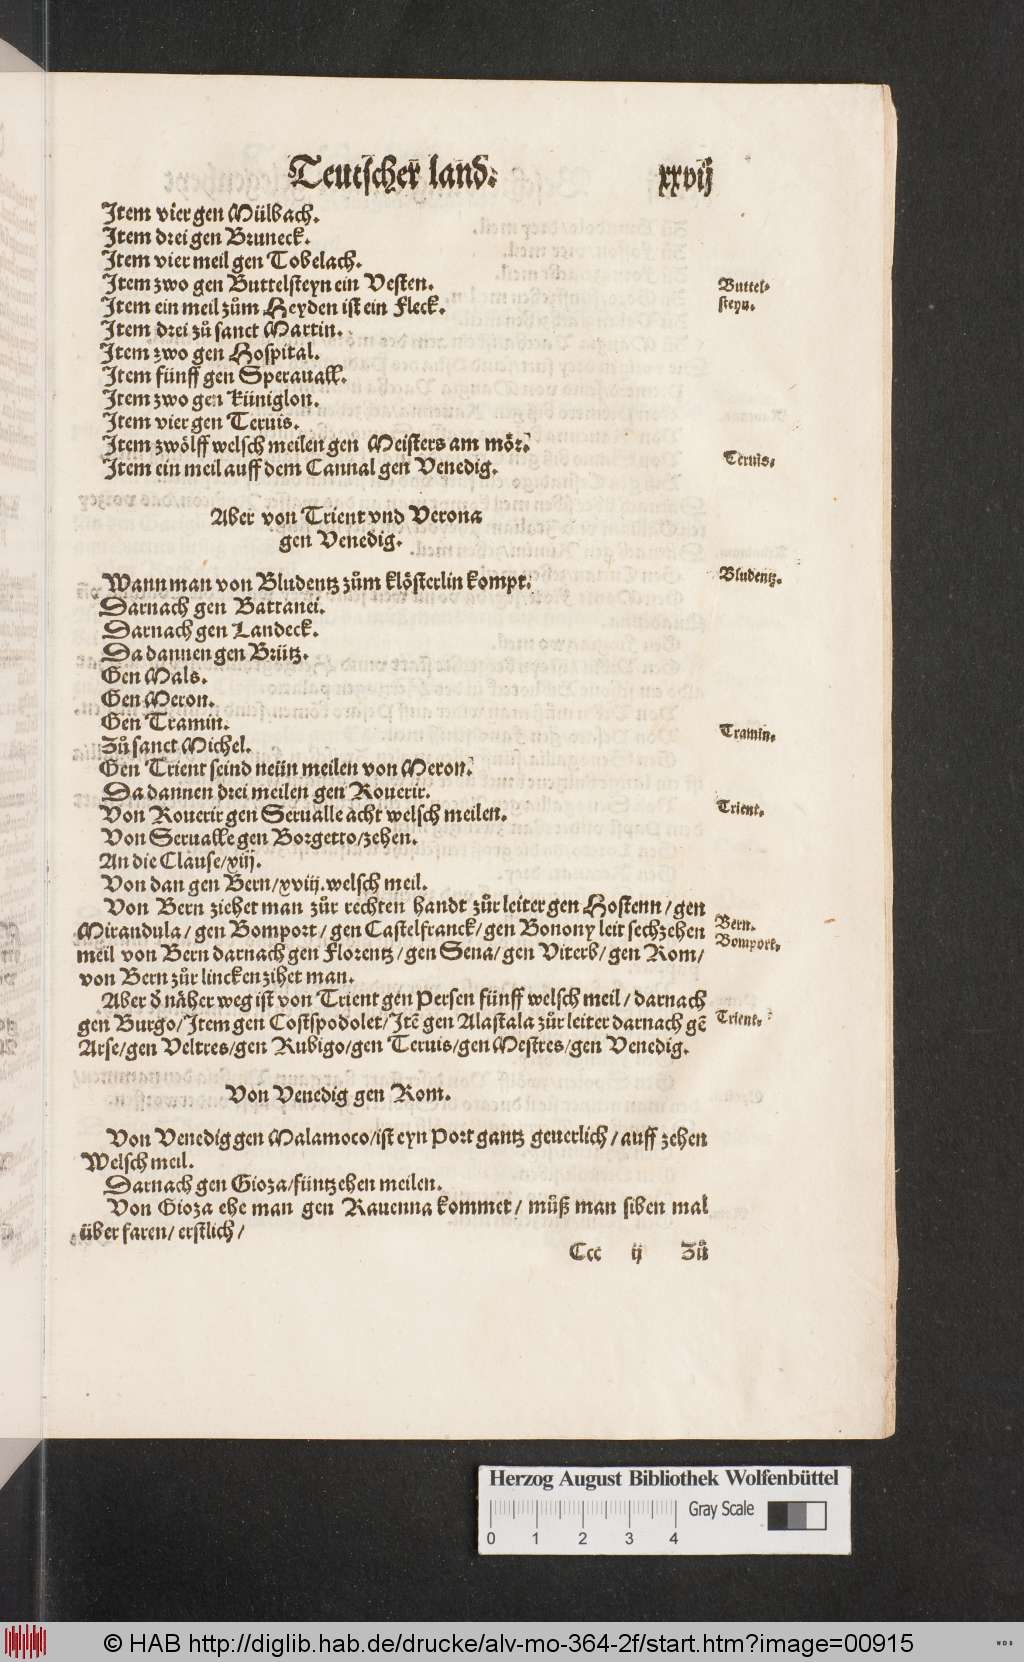 Teutscher land.
xxvij
Item vier gen Mülbach.
Item drei gen Bruneck.
Item vier meil gen Tobelach.
Item zwo gen Buttelsteyn ein Vesten.
Buttel-
steyn.
Item ein meil zům Heyden ist ein fleck.
Item drei zů sanct Martin.
Item zwo gen Hospital.
Item fünff gen Sperauall.
Item zwo gen Küniglon.
Item vier gen Teruis.
Item zwölff welsch meilen gen Meisters am mör.
Teruis.
Item ein meil auff dem Cannal gen Venedig.
Aber von Trient vnd Verona
gen Venedig.
Bludentz.
Wann man von Bludentz zům klösterlin kompt.
Darnach gen Battanei.
Darnach gen Landeck.
Da dannen gen Brütz.
Gen Mals.
Gen Meron.
Gen Tramin.
Tramin.
Zů sanct Michel.
Gen Trient seind neün meilen von Meron.
Da dannen drei meilen gen Rouerir.
Trient.
Von Rouerir gen Serualle acht welsch meilen.
Von Serualle gen Borgetto/zehen.
An die Clause/xiij.
Von dan gen Bern/xviij.welsch meil.
Von Bern ziehet man zůr rechten handt zůr leiter gen Hostenn/gen
Bern.
Mirandula/gen Bomport/gen Castelfranck/gen Bonony leit sechzehen
Bomport.
meil von Bern darnach gen Florentz/gen Sena/gen Viterb/gen Rom/
von Bern zůr lincken zihet man.
Aber d̄ näher weg ist von Trient gen Persen fünff welsch meil/darnach
Trient.
gen Burgo/Item gen Costspodolet/Itē gen Alastala zůr leiter darnach gē
Arse/gen Veltres/gen Rubigo/gen Teruis/gen Mestres/gen Venedig.
Von Venedig gen Rom.
Von Venedig gen Malamoco/ist eyn Port gantz geuerlich/auff zehen
Welsch meil.
Darnach gen Gioza/füntzehen meilen.
Von Gioza ehe man gen Rauenna kommet/můß man siben mal
über faren/erstlich/
Ccc ij Zů
Herzog August Bibliothek Wolfenbüttel
Gray Scale
0 1 2 3 4
© HAB http://diglib.hab.de/drucke/alv-mo-364-2f/start.htm?image=00915